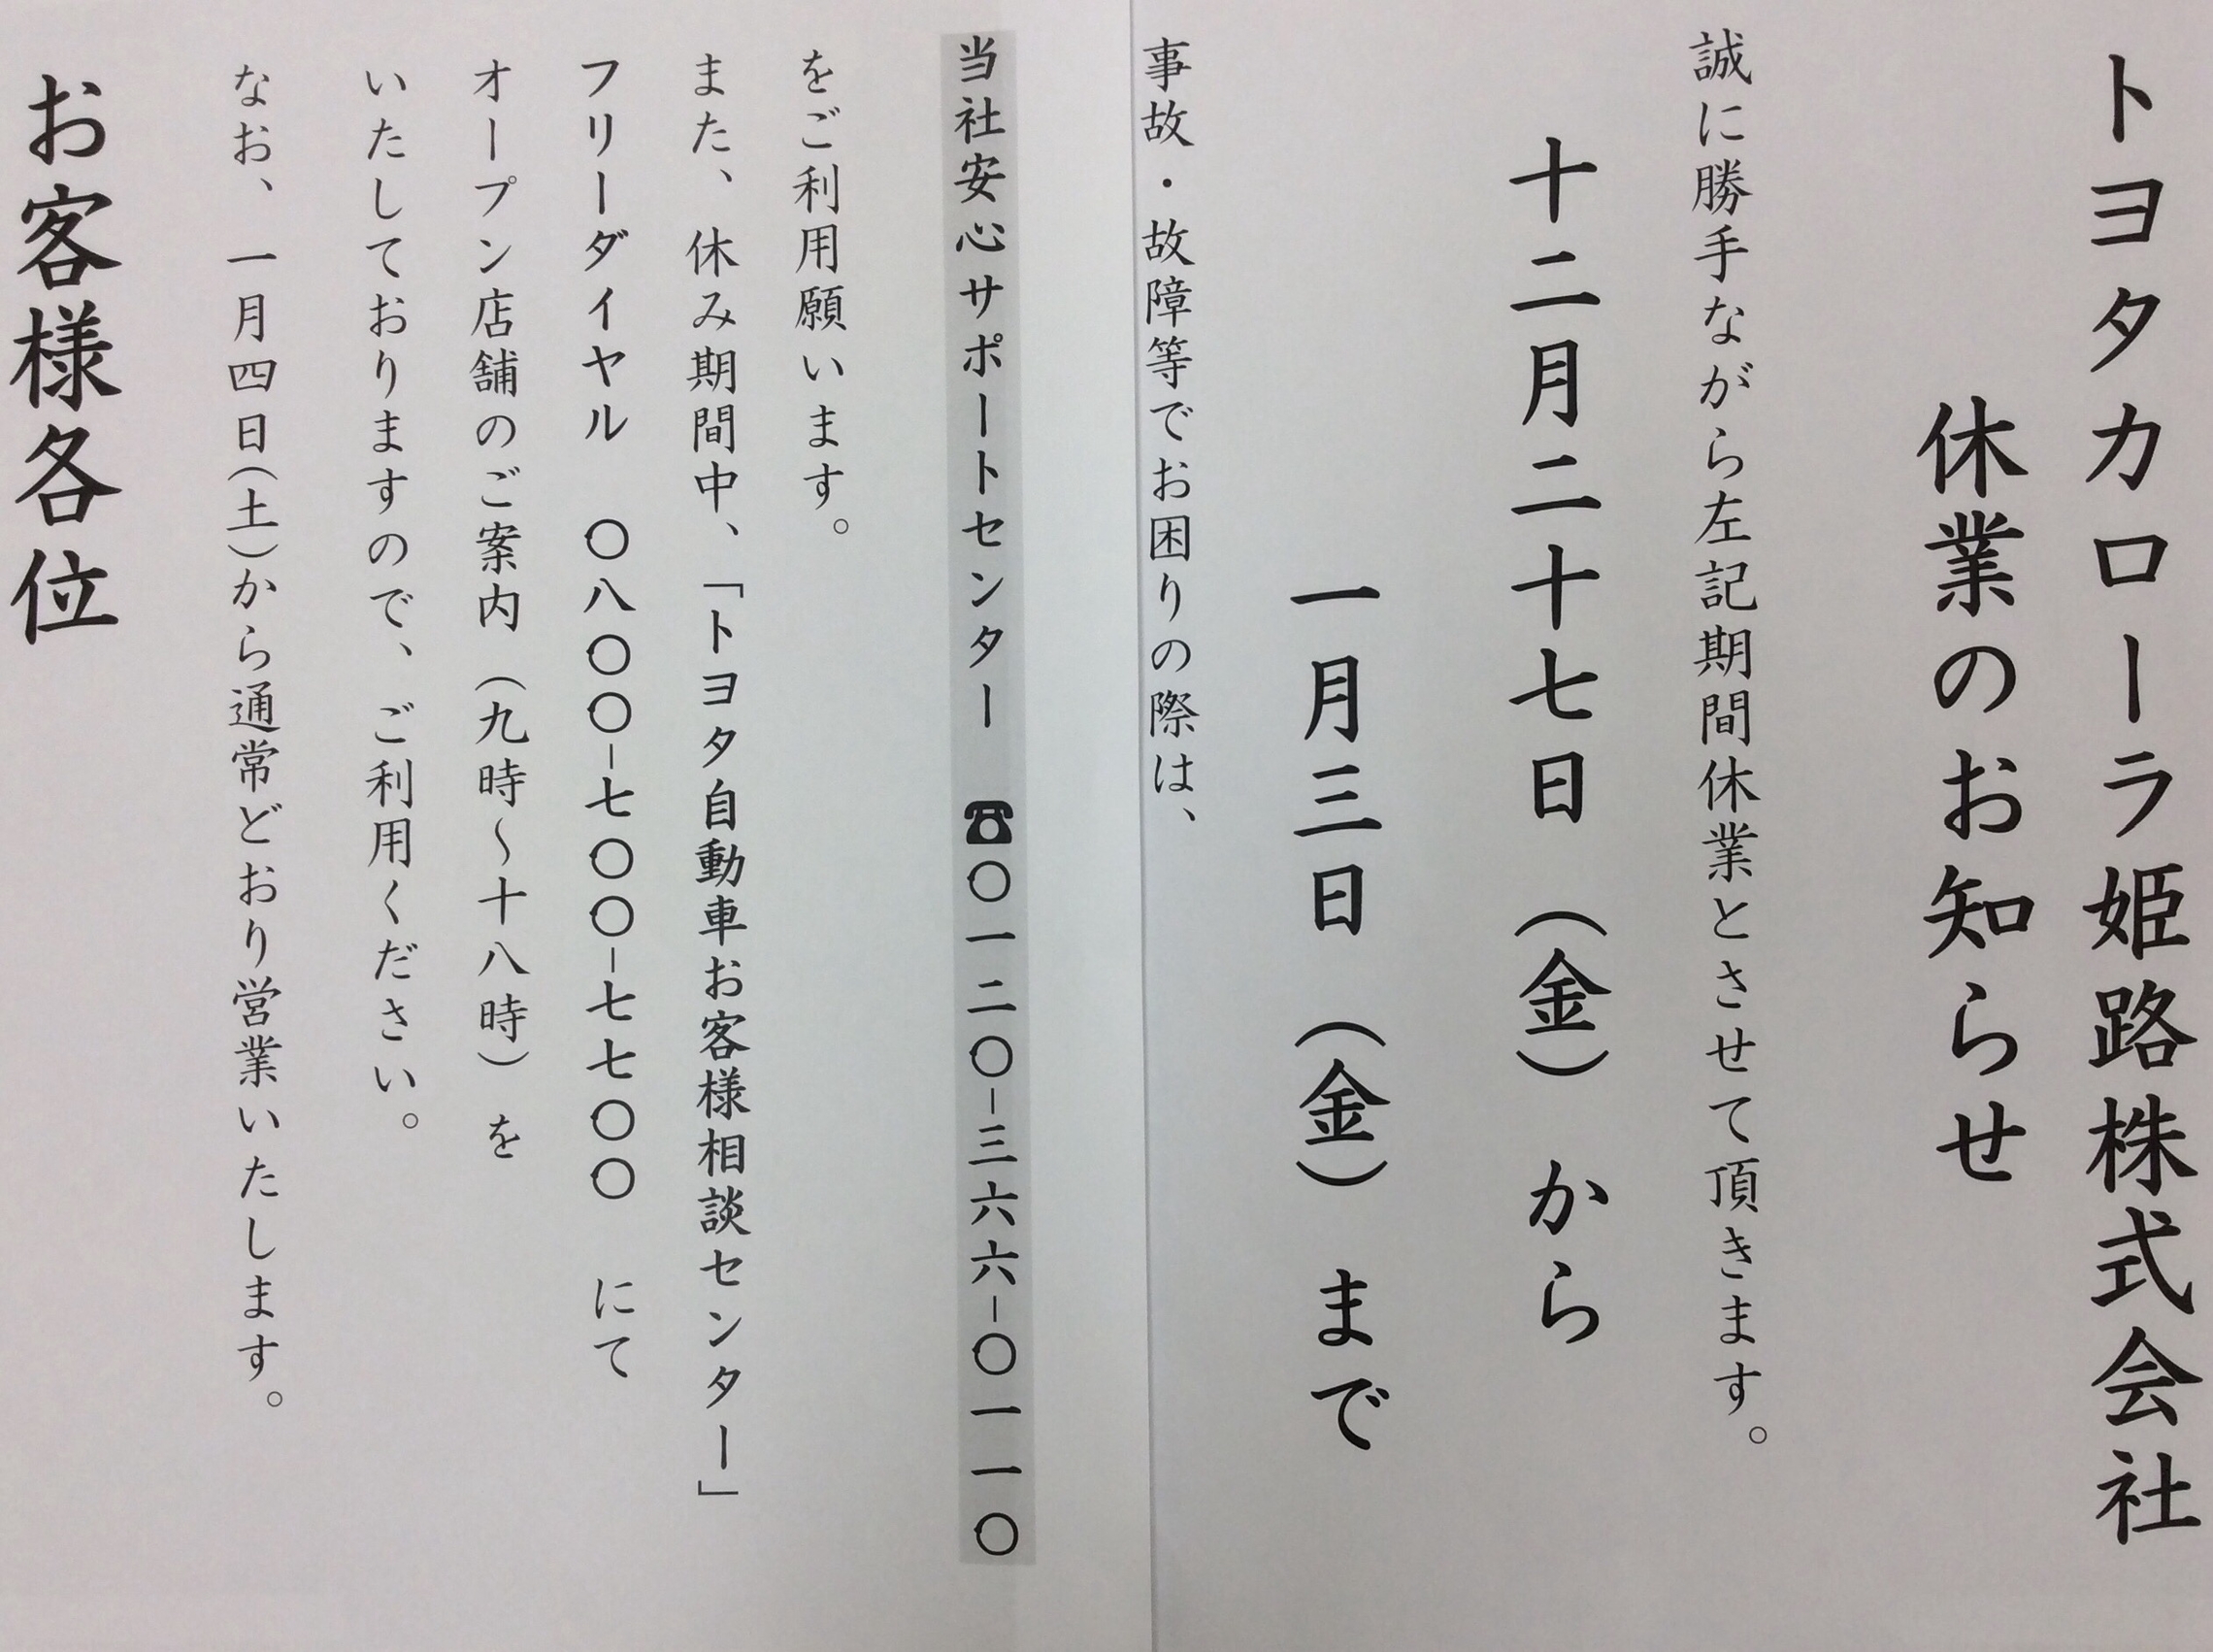 トヨタカローラ姫路株式会社
休業のお知らせ
誠に勝手ながら左記期間休業とさせて頂きます。
十二月二十七日（金）から
一月三日（金）まで
事故・故障等でお困りの際は、
当社安心サポートセンター　☎〇一二〇-三六六-〇一一〇
をご利用願います。
また、休み期間中、「トヨタ自動車お客様相談センター」
フリーダイヤル　〇八〇〇-七〇〇-七七〇〇　にて
オープン店舗のご案内（九時～十八時）を
いたしておりますので、ご利用ください。
なお、一月四日(土)から通常どおり営業いたします。
お客様各位